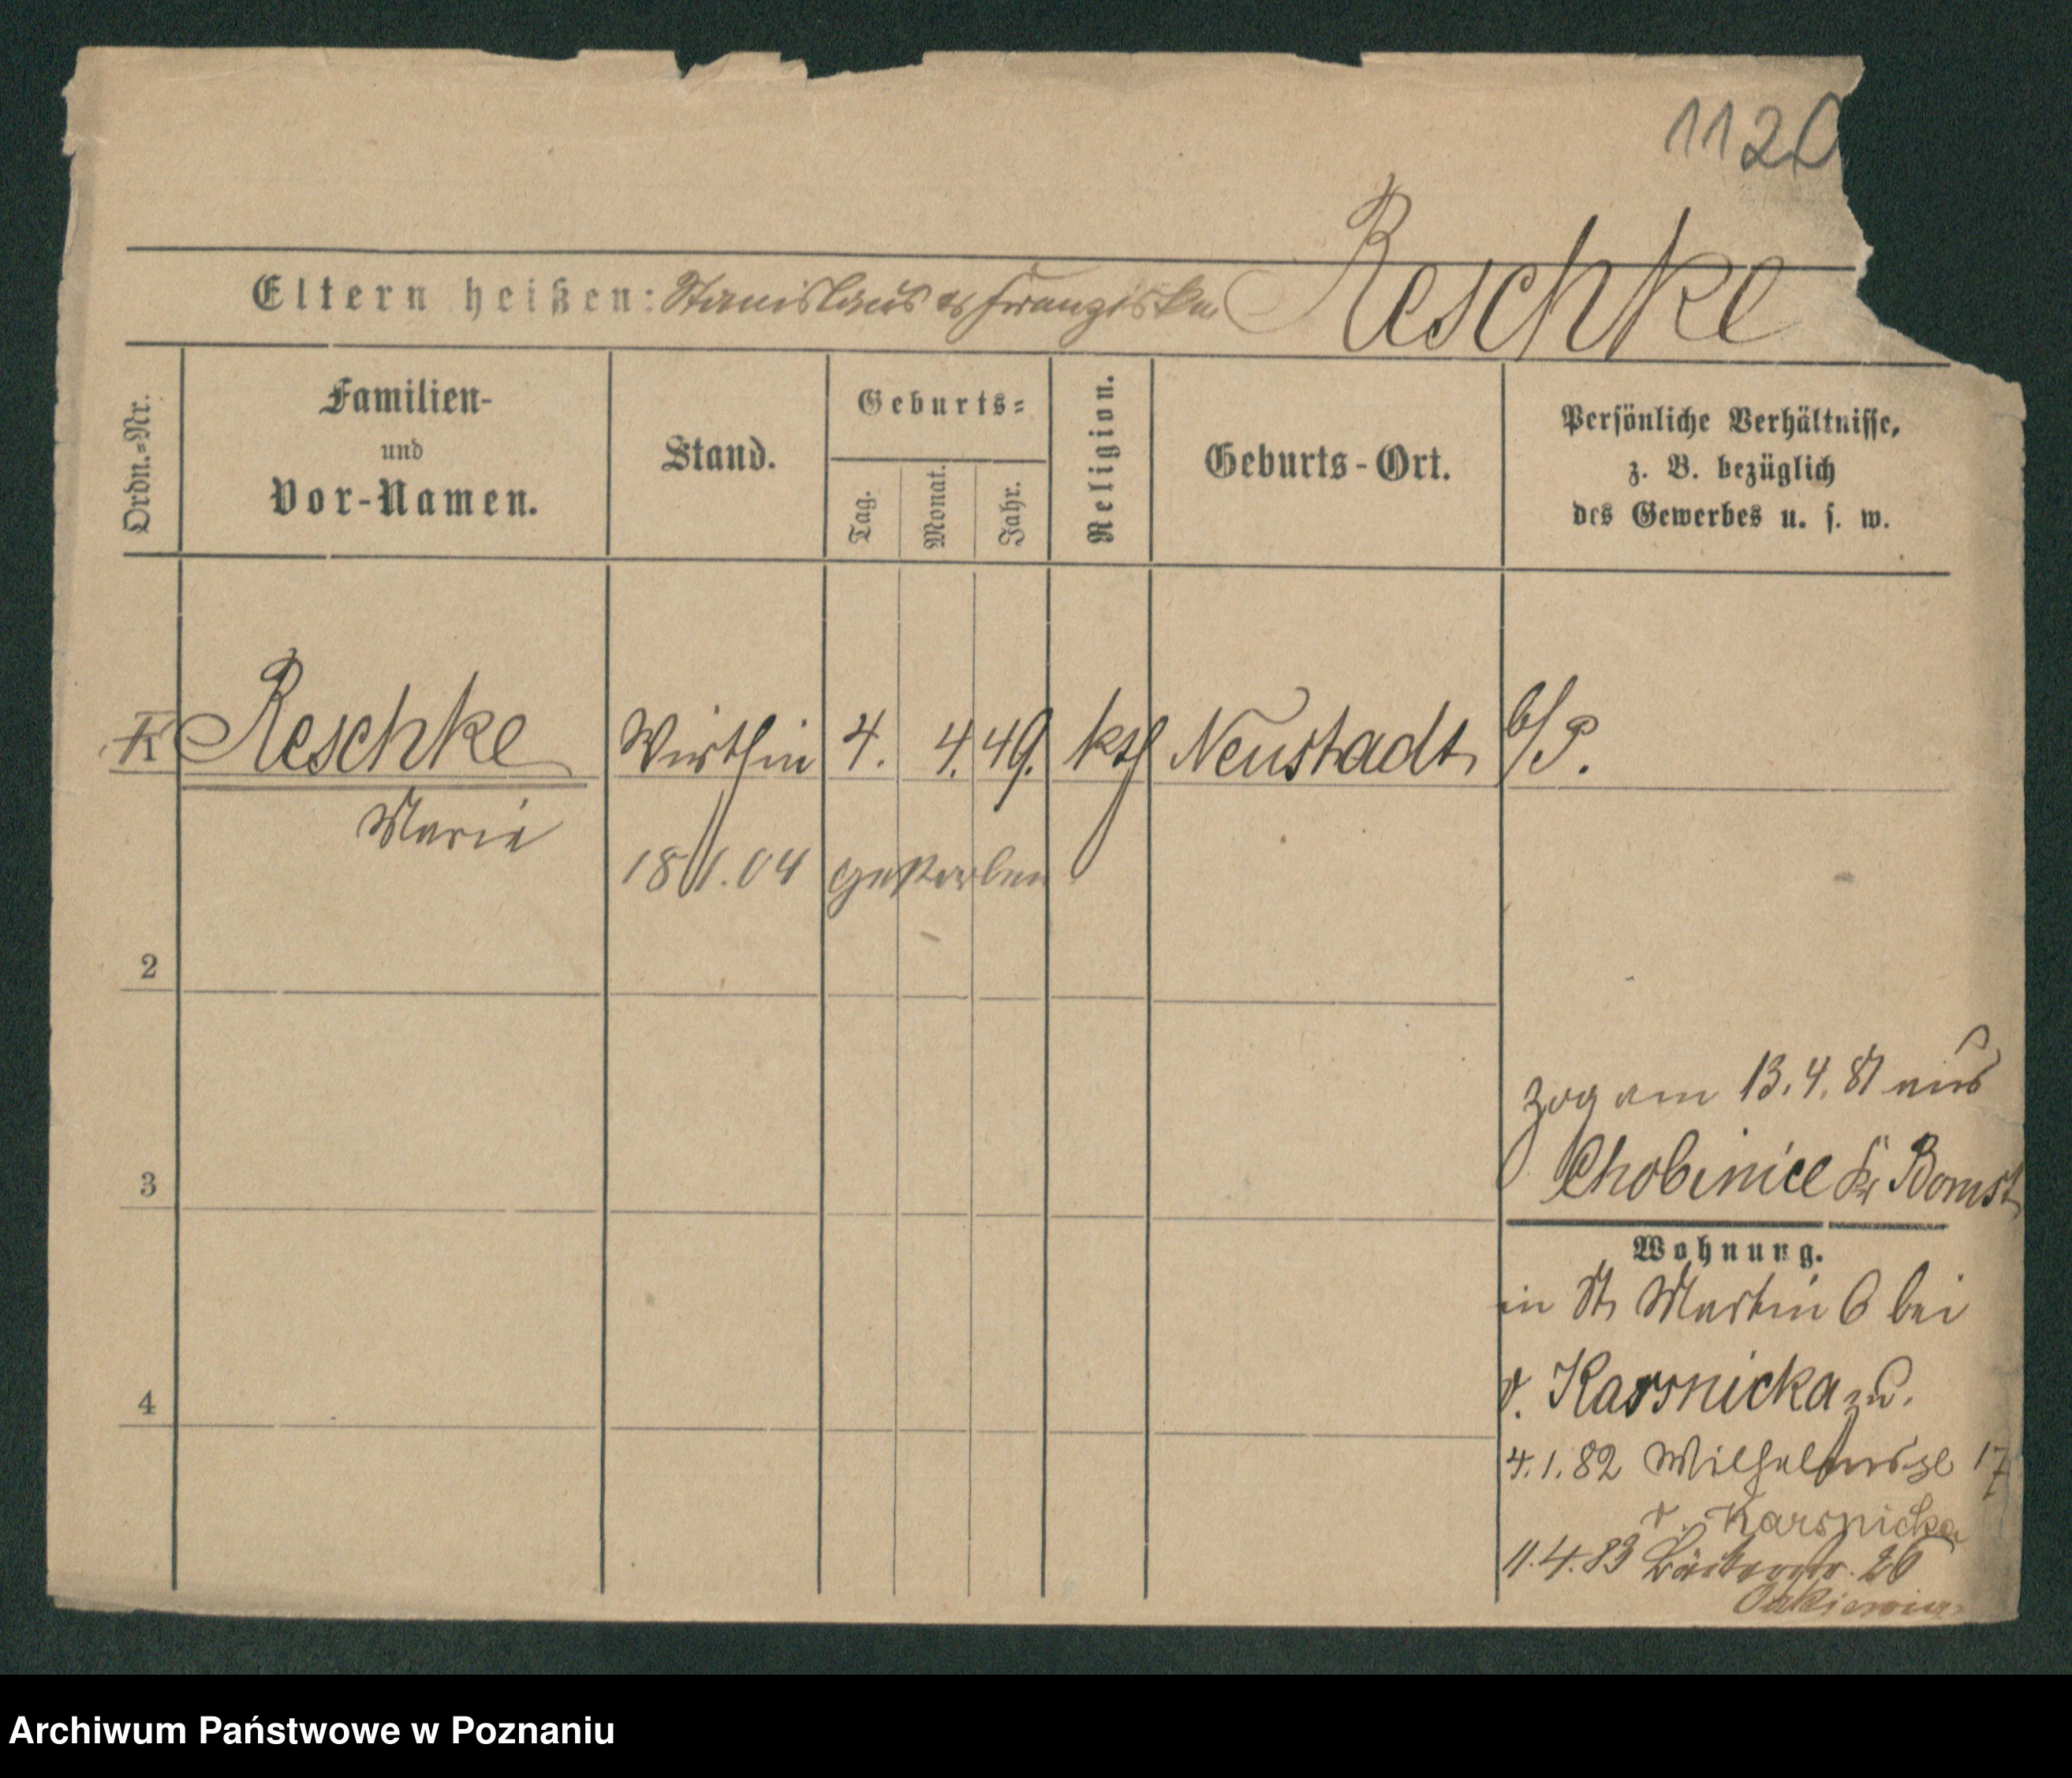 1120
Reschke
Eltern heißen: Stanislaus & Franziska
Ordn.-Nr.
Familien-
und
Vor-Namen.
Stand.
Geburts-
Tag.
Monat.
Jahr.
Religion.
Geburts-Ort.
Persönliche Verhältnisse,
z. B. bezüglich
des Gewerbes u. s. w.
Reschke Wirthin 4. 4. 49. kth Neustadt b/P.
Marie
18/1.04 gestorben
2
3
4
zog am 13.4.81 aus
Chobinice Kr Bomst
Wohnung.
in St Martin 6 bei
v. Karsnicka zu.
4.1.82 Wilhelmspl 17
v. Karsnicka
11.4.83 26
Archiwum Państwowe w Poznaniu